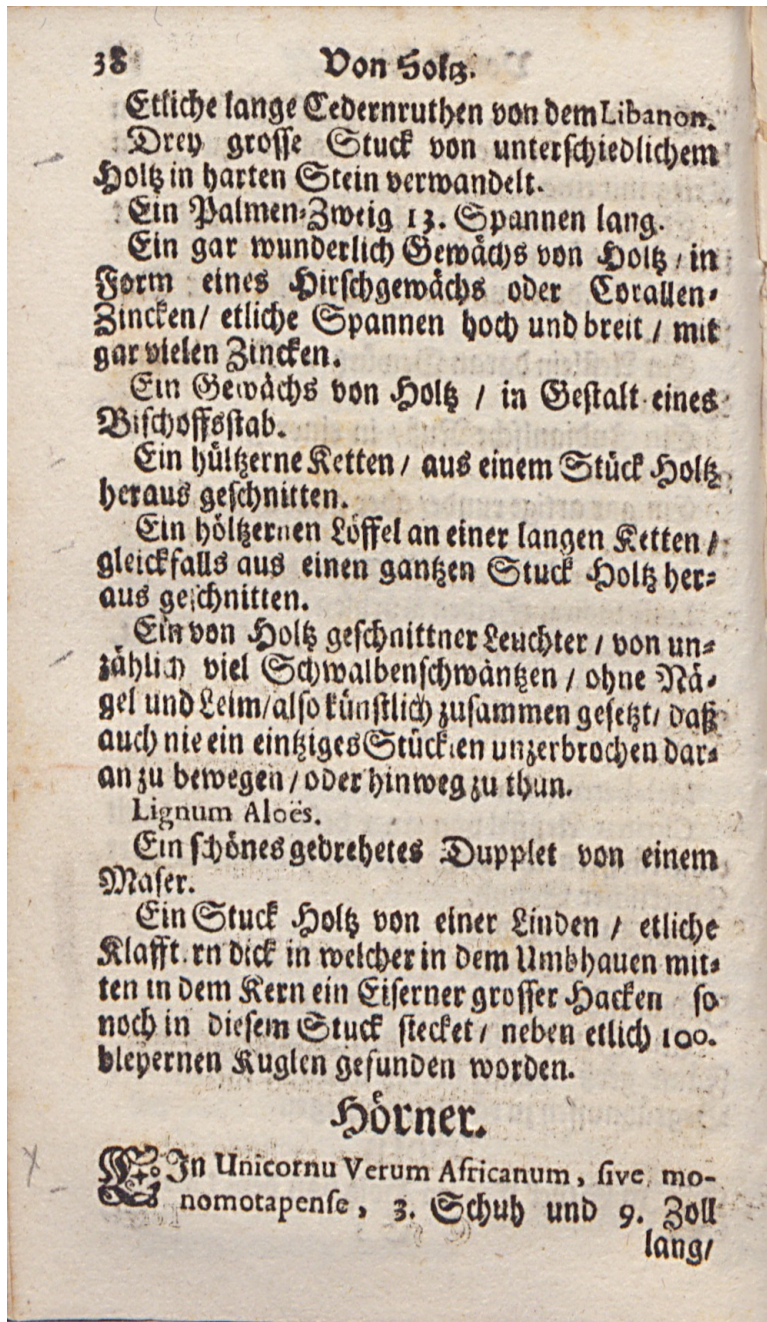 38 Von Holtz.
Etliche lange Cedernruthen von dem Libanon.
Drey grosse Stuck von unterschiedlichem
Holtz in harten Stein verwandelt.
Ein Palmen-Zweig 13. Spannen lang.
Ein gar wunderlich Gewächs von Holtz / in
Form eines Hirschgewächs oder Corallen-
Zincken / etliche Spannen hoch und breit / mit
gar vielen Zincken.
Ein Gewächs von Holtz / in Gestalt eines
Bischoffsstab.
Ein hültzerne Ketten / aus einem Stück Holtz
heraus geschnitten.
Ein höltzernen Löffel an einer langen Ketten /
gleickfalls aus einen gantzen Stuck Holtz her-
aus geschnitten.
Ein von Holtz geschnittner Leuchter / von un-
zählich viel Schwalbenschwäntzen / ohne Nä-
gel und Leim / also künstlich zusammen gesetzt / daß
auch nie ein eintziges Stücklen unzerbrochen dar-
an zu bewegen / oder hinweg zu thun.
Lignum Aloës.
Ein schönes gedrehetes Dupplet von einem
Maser.
Ein Stuck Holtz von einer Linden / etliche
Klafftern dick in welcher in dem Umbhauen mit-
ten in dem Kern ein Eiserner grosser Hacken so
noch in diesem Stuck stecket / neben etlich 100.
bleyernen Kuglen gefunden worden.
Hörner.
EIn Unicornu Verum Africanum, sive mo-
nomotapense, 3. Schuh und 9. Zoll
lang /